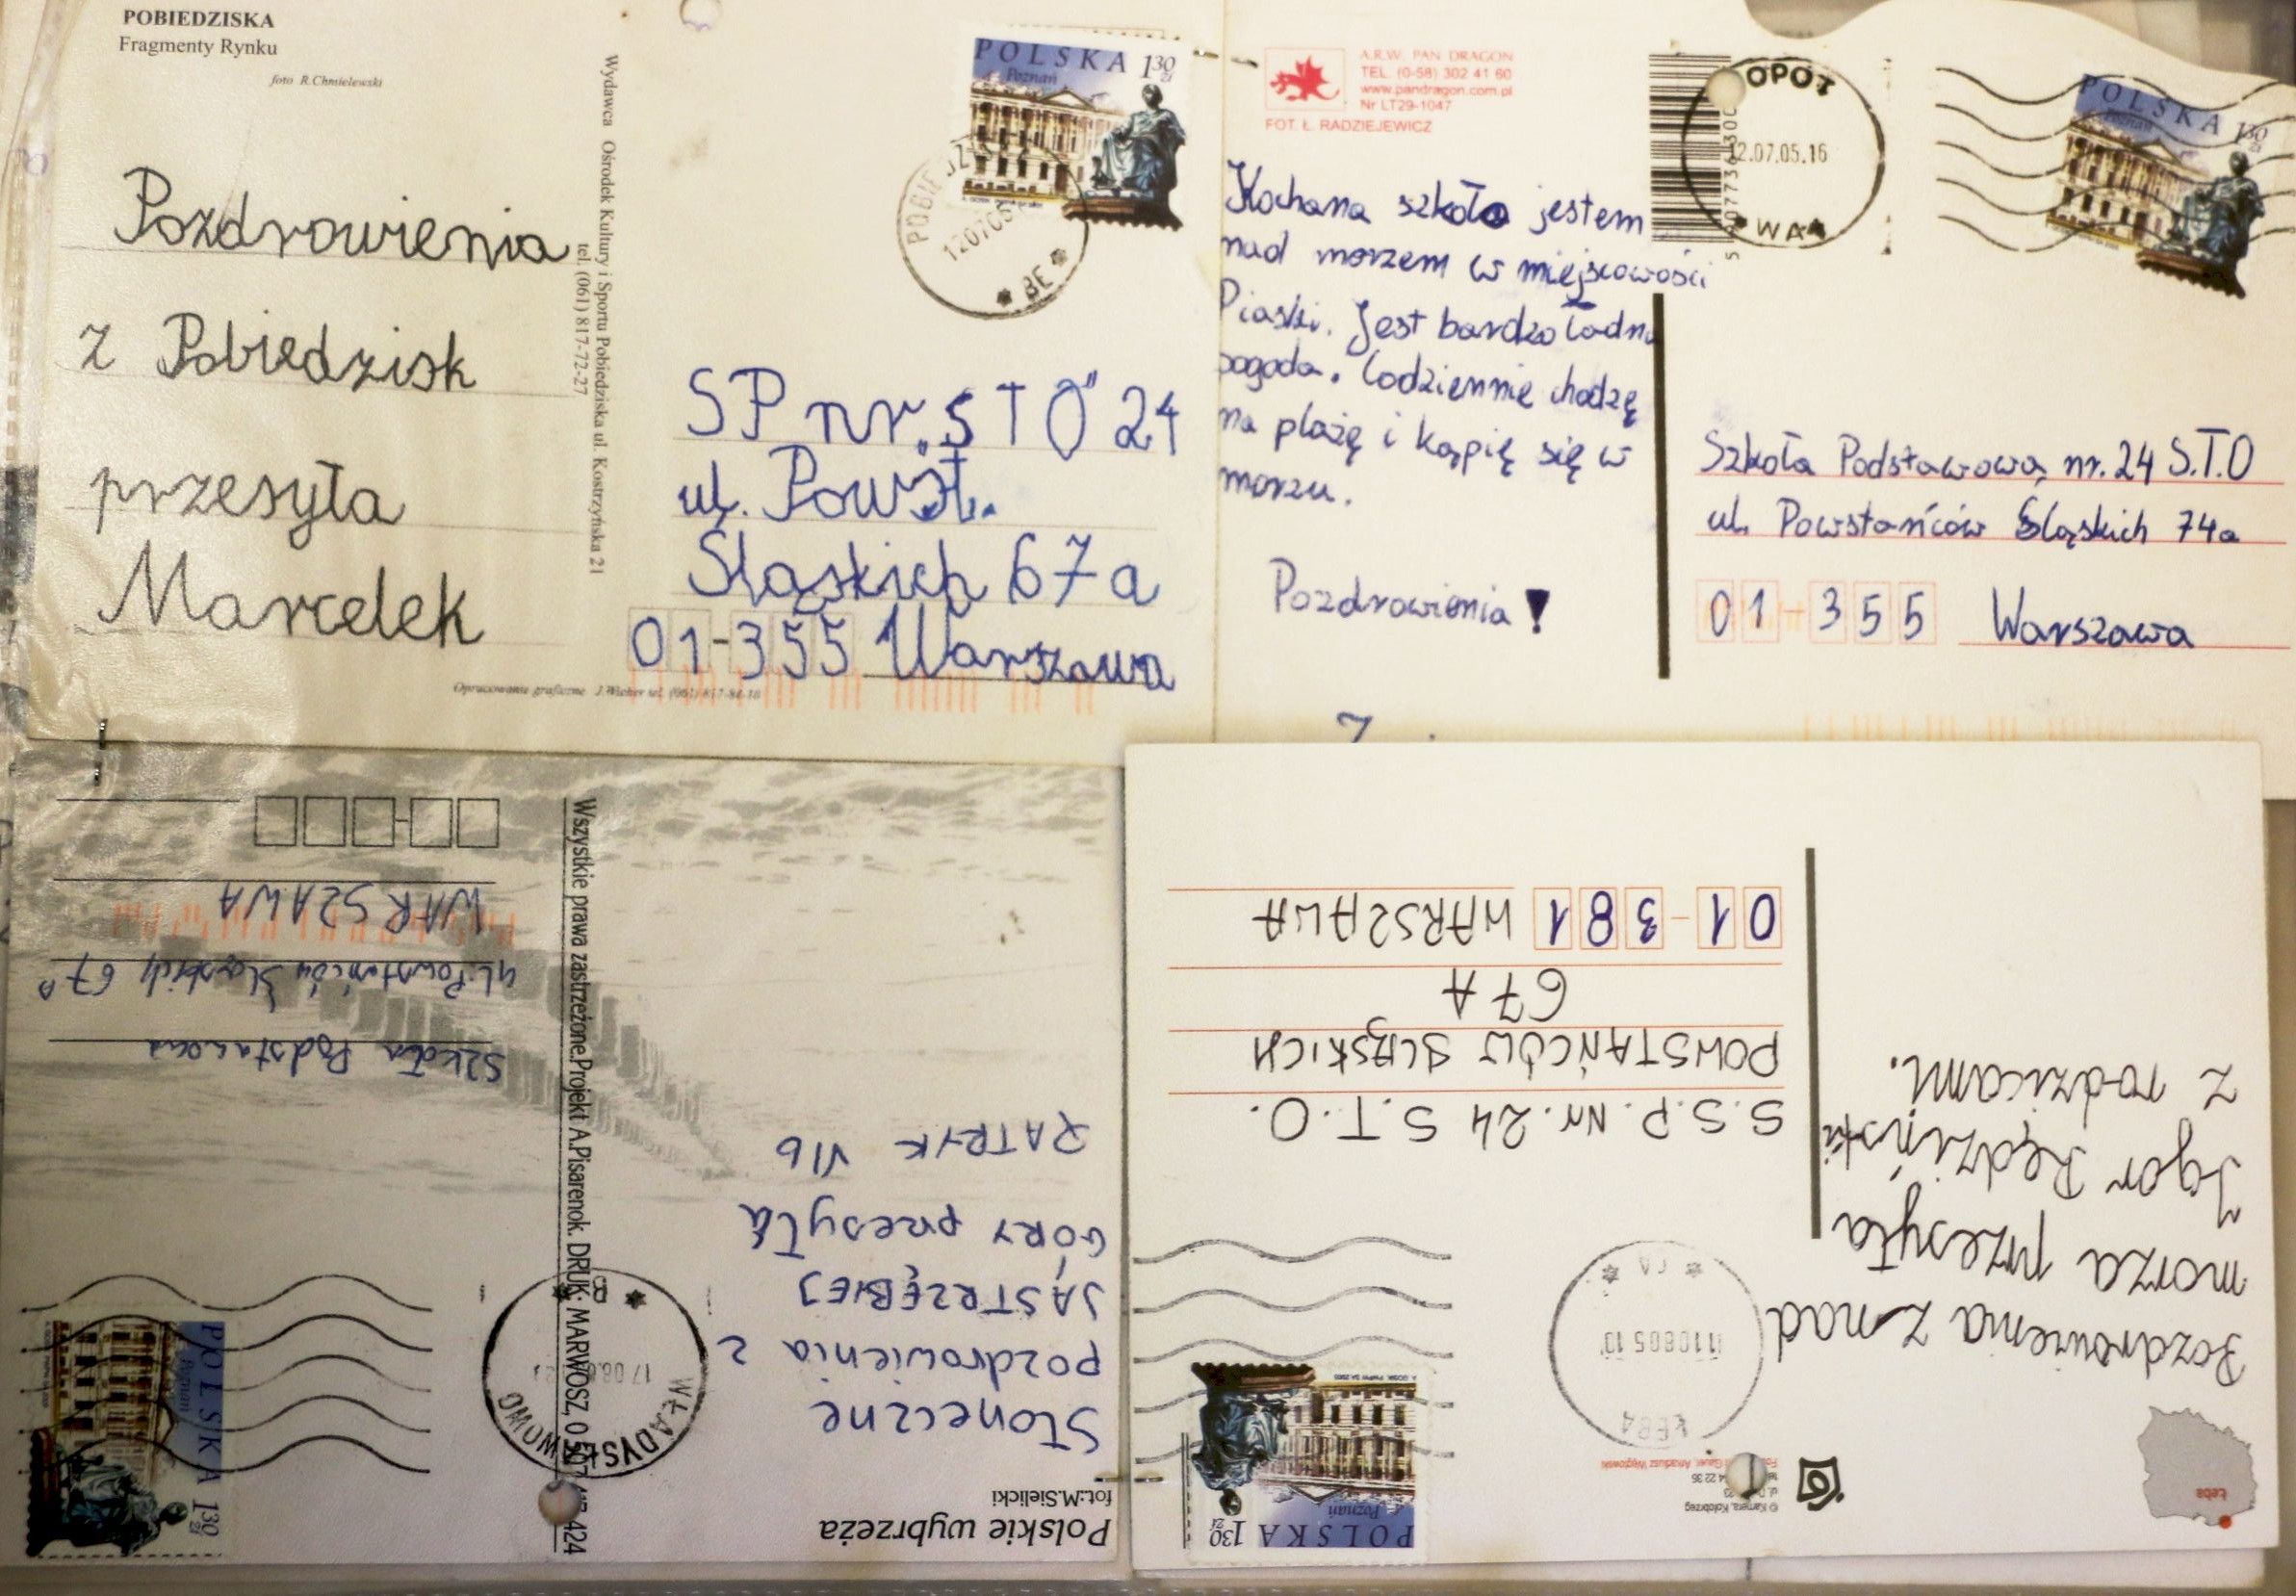 POBIEDZISKA
Fragmenty Rynku
foto R.Chmielewski
Pozdrowienia
z Pobiedzisk
przesyła
Marcelek
Wydawca Ośrodek Kultury i Sportu Pobiedziska ul. Kostrzyńska 21
tel. (061) 817-72-27
POLSKA 130 zł
Poznań
120705
BE
SP nr „STO" 24
ul. Powst.
Śląskich 67a
01-355 Warszawa
Opracowanie graficzne
A.R.W. PAN DRAGON
TEL. (0-58) 302 41 60
www.pandragon.com.pl
Nr LT29-1047
FOT. Ł. RADZIEJEWICZ
Kochana szkoło jestem
nad morzem w miejscowości
Piaski. Jest bardzo ładna
pogoda. Codziennie chodzę
na plażę i kąpię się w
morzu.
Pozdrowienia!
OPOT
2.07.05.16
WA4
POLSKA 130 zł
Poznań
Szkoła Podstawowa nr. 24 S.T.O
ul. Powstańców Śląskich 74a
01-355 Warszawa
Polskie wybrzeża
fot:M.Sielicki
Słoneczne
pozdrowienia z
JASTRZĘBIEJ
GÓRY przesyła
PATRYK VIb
Wszystkie prawa zastrzeżone.Projekt A.Pisarenok. DRUK: MARWOSZ, 0 507 424
WŁADYSŁAWOWO
POLSKA 130 zł
Poznań
Szkoła Podstawowa
ul. Powstańców Śląskich 67A
WARSZAWA
Łeba
© Kamera, Kołobrzeg
Pozdrowienia znad
morza przesyła
Igor Rędziński
z rodzicami.
ŁEBA
110805 10
POLSKA 130 zł
Poznań
S.S.P. Nr. 24 S.T.O.
POWSTAŃCÓW ŚLĄSKICH
67A
01-381 WARSZAWA